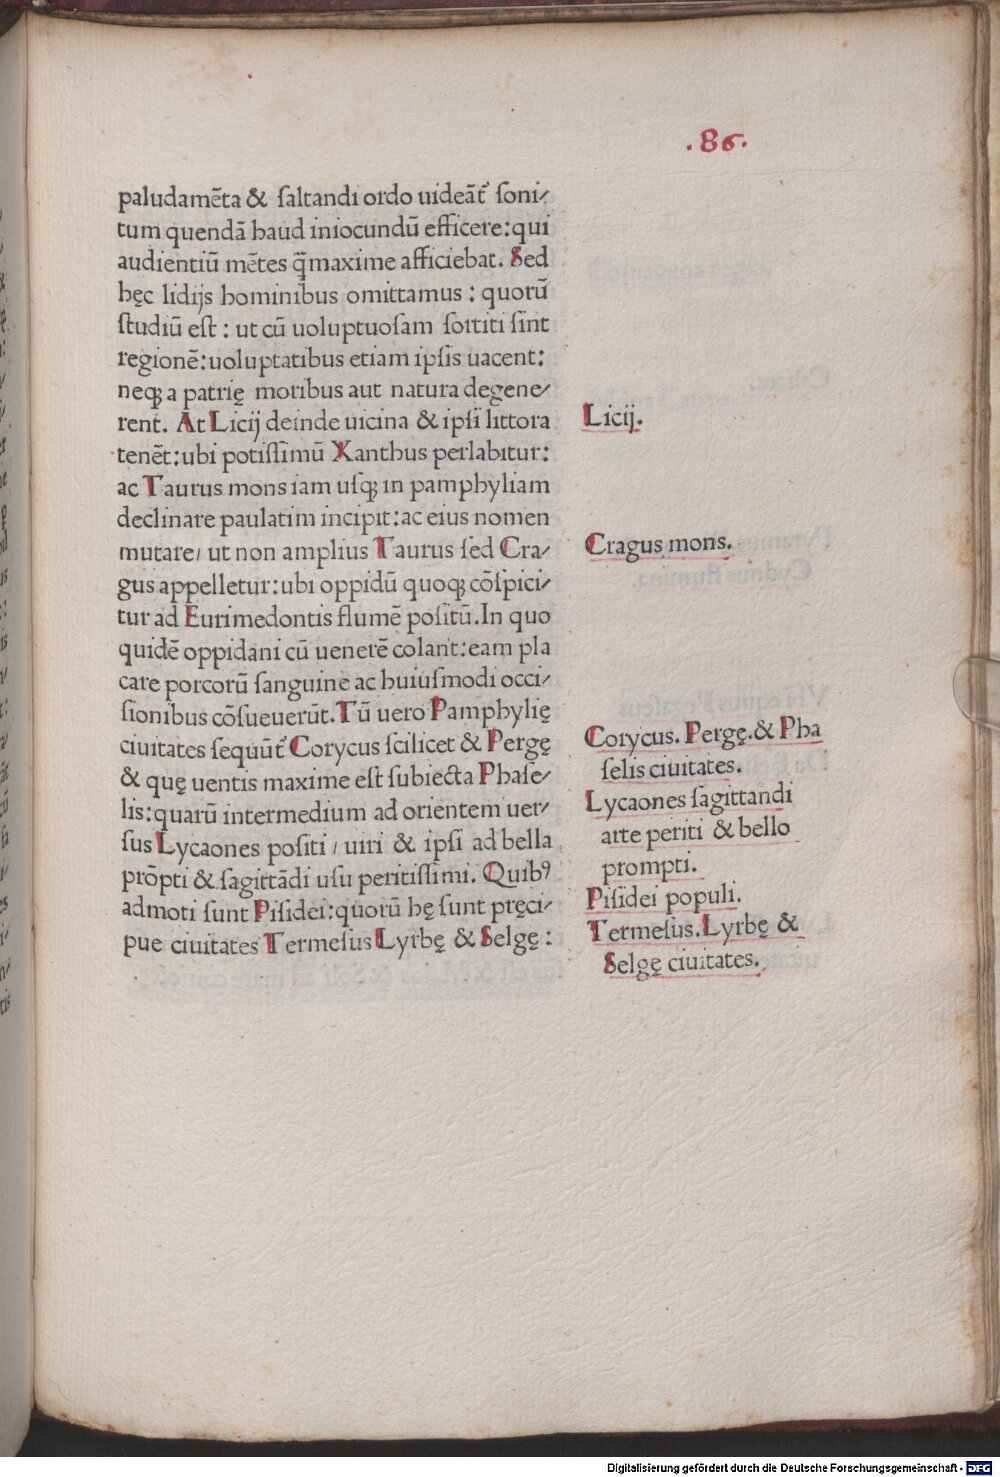 .86.
paludamēta & ſaltandi ordo uideāt᷑ ſoni/
tum quendā haud iniocundū efficere:qui
audientiū mētes q̄maxime afficiebat. Sed
hęc lidijs hominibus omittamus : quorū
ſtudiū eſt : ut cū uoluptuoſam ſortiti ſint
regionē:uoluptatibus etiam ipſis uacent:
neqꝫ a patrię moribus aut natura degene/
rent. At Licij deinde uicina & ipſi littora
tenēt:ubi potiſſimū Xanthus perlabitur:
ac Taurus mons iam uſqꝫ in pamphyliam
declinare paulatim incipit:ac eius nomen
mutare/ ut non amplius Taurus ſed Cra/
gus appelletur:ubi oppidū quoqꝫ cōſpici/
tur ad Eurimedontis flumē poſitū.In quo
quidē oppidani cū uenerē colant:eam pla
care porcorū ſanguine ac huiuſmodi occi/
ſionibus cōſueuerūt.Tū uero Pamphylię
ciuitates ſequūt᷑ Corycus ſcilicet & Pergę
& quę uentis maxime eſt ſubiecta Phaſe/
lis:quarū intermedium ad orientem uer/
ſus Lycaones poſiti / uiri & ipſi ad bella
prōpti & ſagittādi uſu peritiſſimi. Quibꝰ
admoti ſunt Piſidei:quorū hę ſunt pręci/
pue ciuitates Termeſus Lyrbę & Selgę :
Licij.
Cragus mons.
Corycus. Pergę.& Pha
ſelis ciuitates.
Lycaones ſagittandi
arte periti & bello
prompti.
Piſidei populi.
Termeſus.Lyrbę &
Selgę ciuitates.
Digitalisierung gefördert durch die Deutsche Forschungsgemeinschaft - DFG